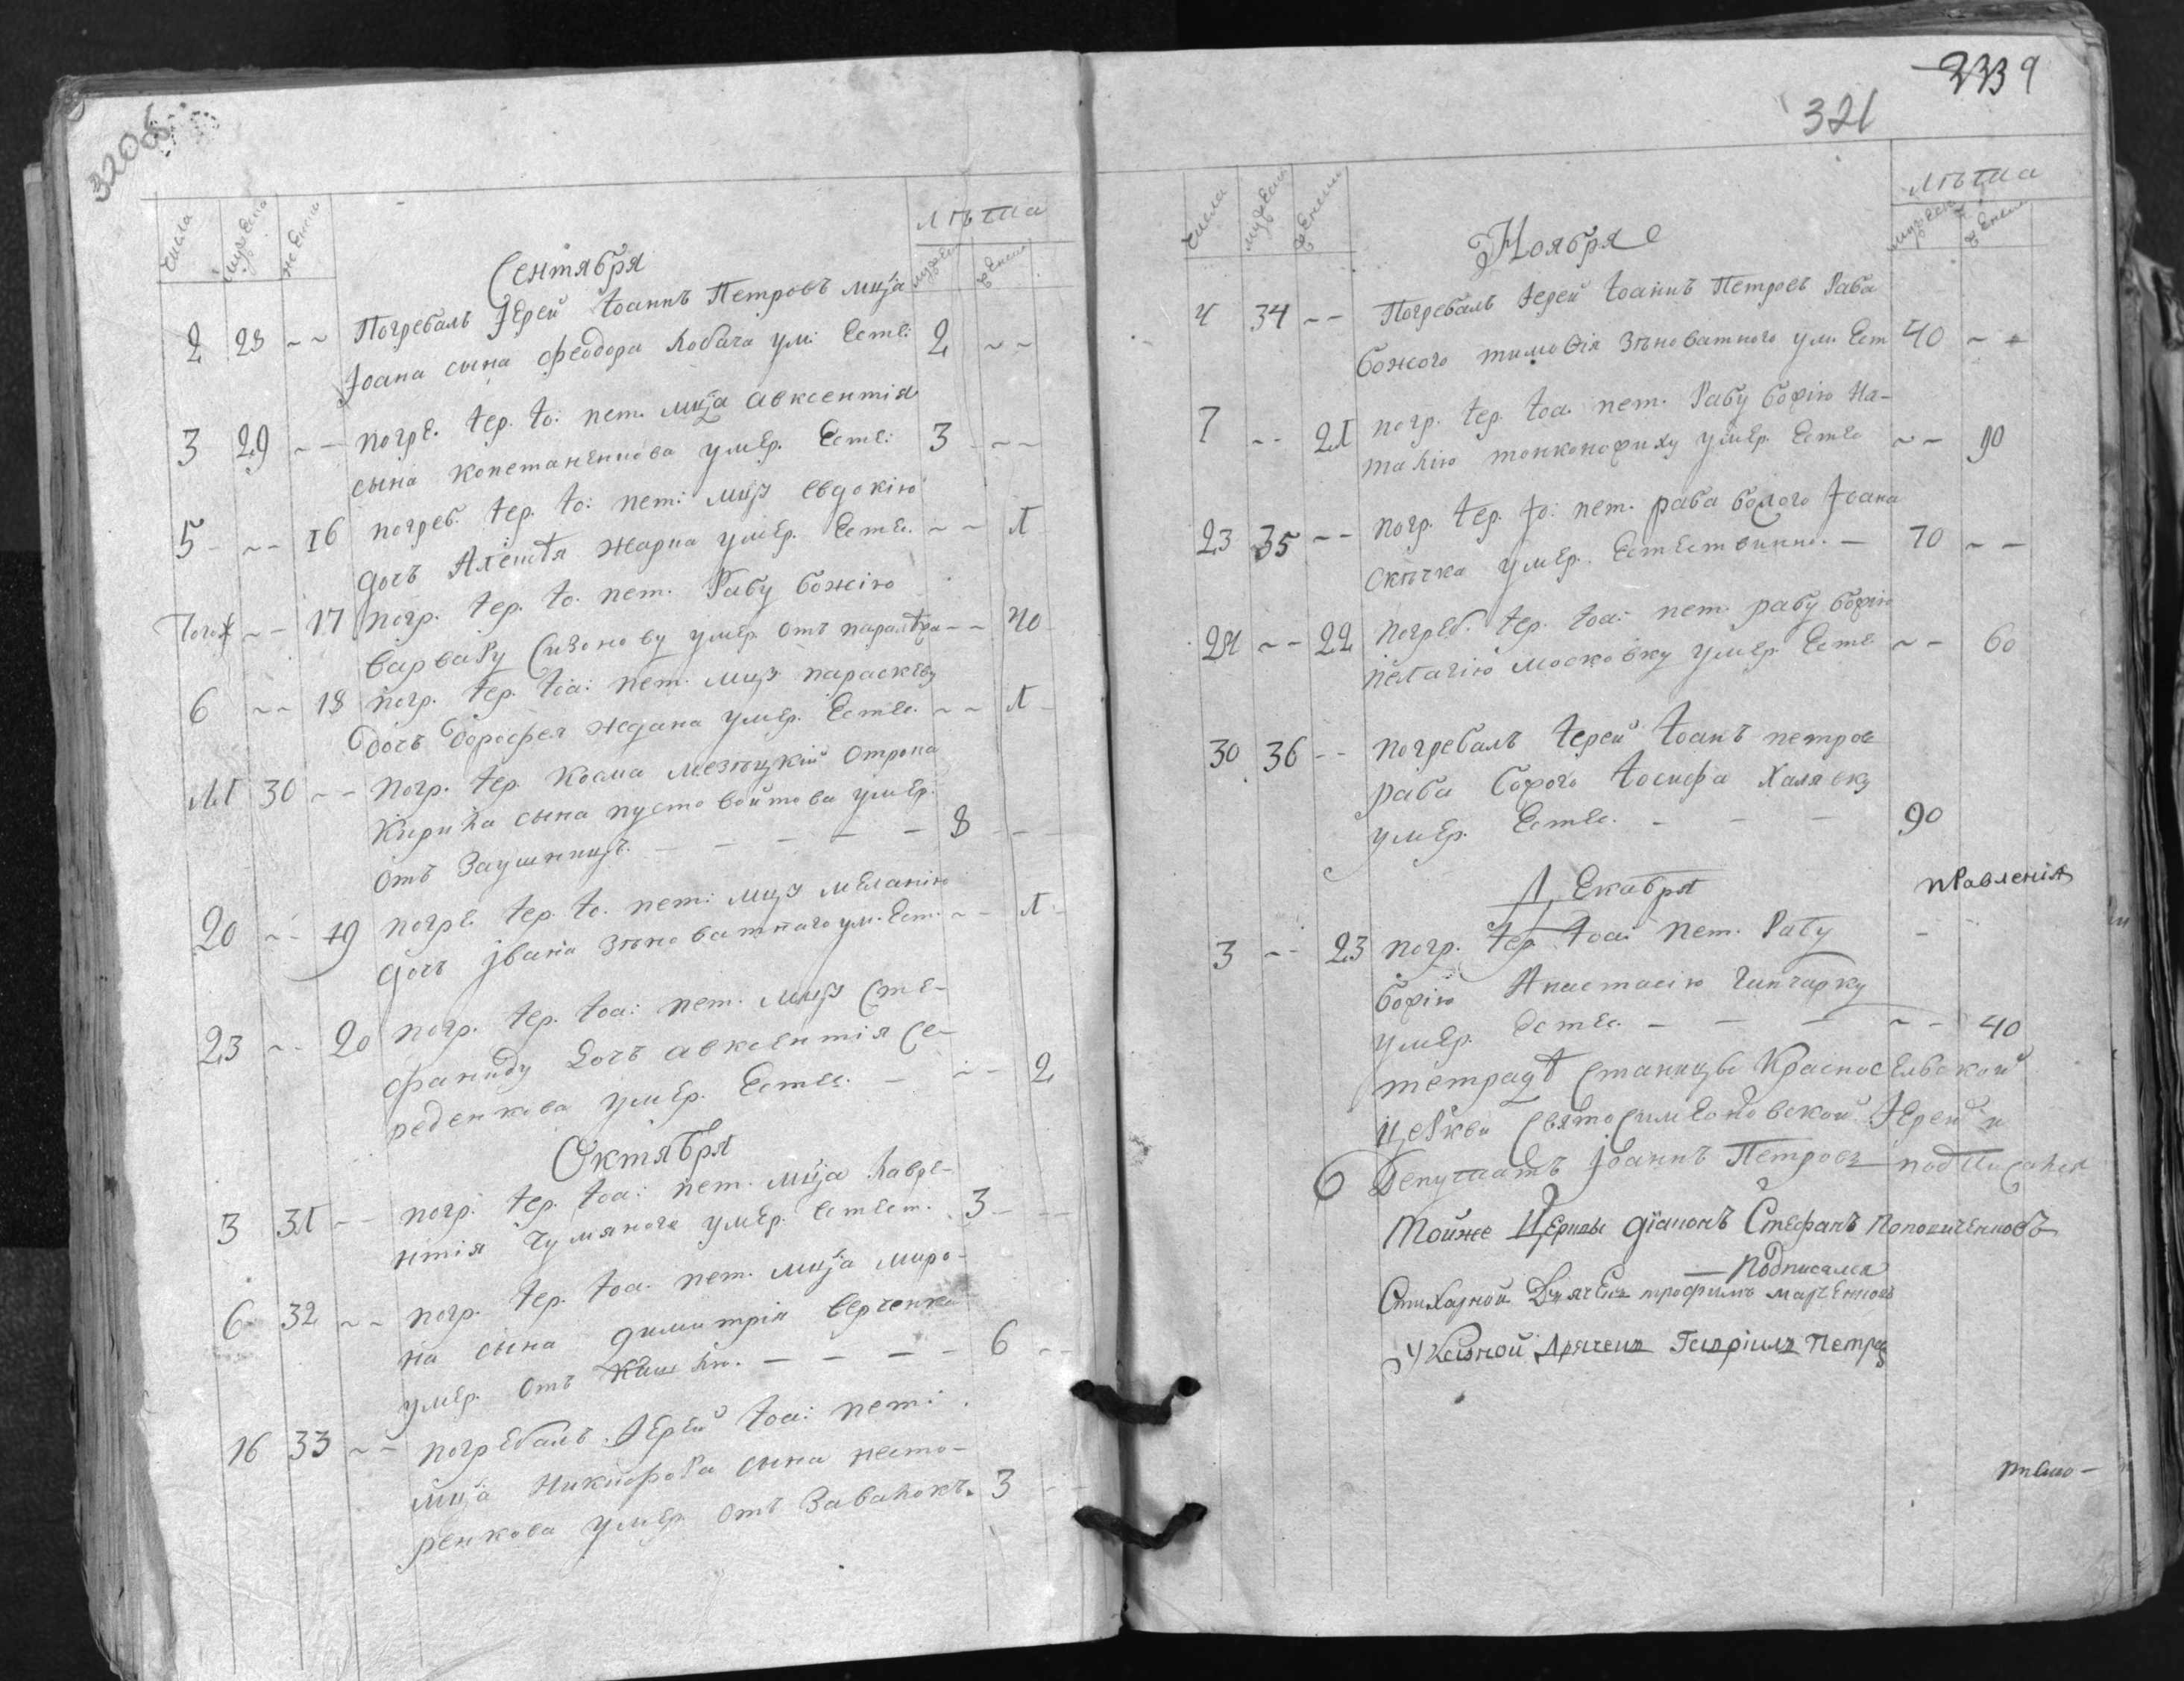 320об
Числа
мужеска
женска
Лѣта
мужеск
женск
Сентября
2 28 ~ ~ Погребалъ Іерей Іоаннъ Петровъ млца
Іоана сына феодора Кобача ум: Есте: 2 ~ ~
3 29 ~ ~ погре. іер. іо: пет. млца авксентія
сына константинова умер. Есте: 3 ~ ~
5 ~ ~ 16 погреб. іер. іо: пет: млцу евдокію
дочь Алексѣя Жарка умер. Есте. ~ ~ 1
Тогож ~ ~ 17 погр. іер. іо. пет. Рабу божію
варвару Сизонову умер. отъ ~ ~ 40
6 ~ ~ 18 погр. іер. іоа: пет. млцу параскеву
дочь дорофея Ждана умер. Есте. ~ ~ 1
11 30 ~ ~ погр. іер. Косма Мезѣцкій отрока
Кирила сына пустовойтова умер.
отъ Заушницъ. — — — — — 8 ~ ~
20 ~ ~ 19 погре. іер. іо. пет: млцу меланію
дочь івана Зѣноватнаго ум. Ест. ~ ~ 1
23 ~ ~ 20 погр. іер. іоа: пет. млцу Сте-
фаниду дочь авксентія Се-
реденкова умер. Есте. — ~ ~ 2
Октября
3 31 ~ ~ погр. іер. іоа: пет. млца лавре-
нтія Чумянога умер. естест. 3 ~ ~
6 32 ~ ~ погр. іер. іоа. пет. млца миро-
на сына димитрія верченка
умер. отъ — — — — 6 ~ ~
16 33 ~ ~ погребалъ Іерей Іоа: пет:
млца Никифора сына несте-
ренкова умер. отъ Завалокъ. 3 ~ ~
2339
321
Числа
мужеск
женски
Лѣта
мужеск
женск
Ноября
4 34 ~ ~ Погребалъ Іерей Іоаннъ Петровъ Раба
божого тимоѳія Зѣноватного ум. Ест 40 ~ ~
7 ~ ~ 21 погр. іер. іоа. пет. Рабу божію На-
талію тонконожиху умер. Есте ~ ~ 90
23 35 ~ ~ погр. іер. іо: пет. раба божого Іоана
Скѣчка умер. Естественно. — 70 ~ ~
24 ~ ~ 22 погреб. іер. іоа: пет. рабу божію
пелагію московку умер. Есте ~ ~ 60
30 36 ~ ~ погребалъ іерей іоанъ петров
раба божого іосифа Халявку
умер. Есте. — — — 90
Декабря
3 ~ ~ 23 погр. іер іоа: пет. Рабу
божію Анастасію Гинчарку
умер. Есте. — — — ~ ~ 40
правленія
тетрадѣ Станицы Красноселвской
Церкви Святосимеоновской Іерей и
депутатъ іоаннъ Петровъ подписался
Тойже Церквы діаконъ Стефанъ Поповиченковъ
— Подписался
Стихарной Дьячекъ трофимъ марченковъ
Указной Дьячекъ Гавріилъ Петров